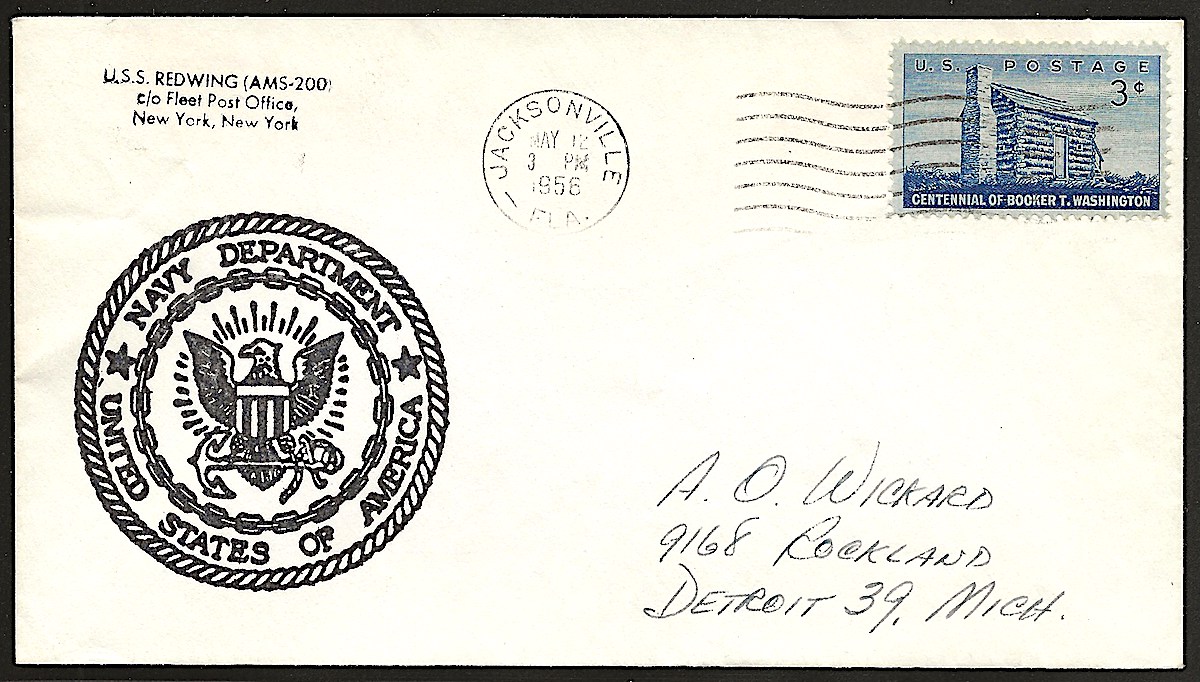 U.S.S. REDWING (AMS-200)
c/o Fleet Post Office,
New York, New York
JACKSONVILLE
MAY 12
3 PM
1956
FLA.
U.S. POSTAGE
3¢
CENTENNIAL OF BOOKER T. WASHINGTON
NAVY DEPARTMENT
UNITED STATES OF AMERICA
A. O. WICKARD
9168 ROCKLAND
DETROIT 39, MICH.